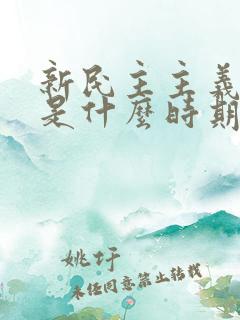 新民主主義
是什麼時期
姚圩
未经同意禁止转载